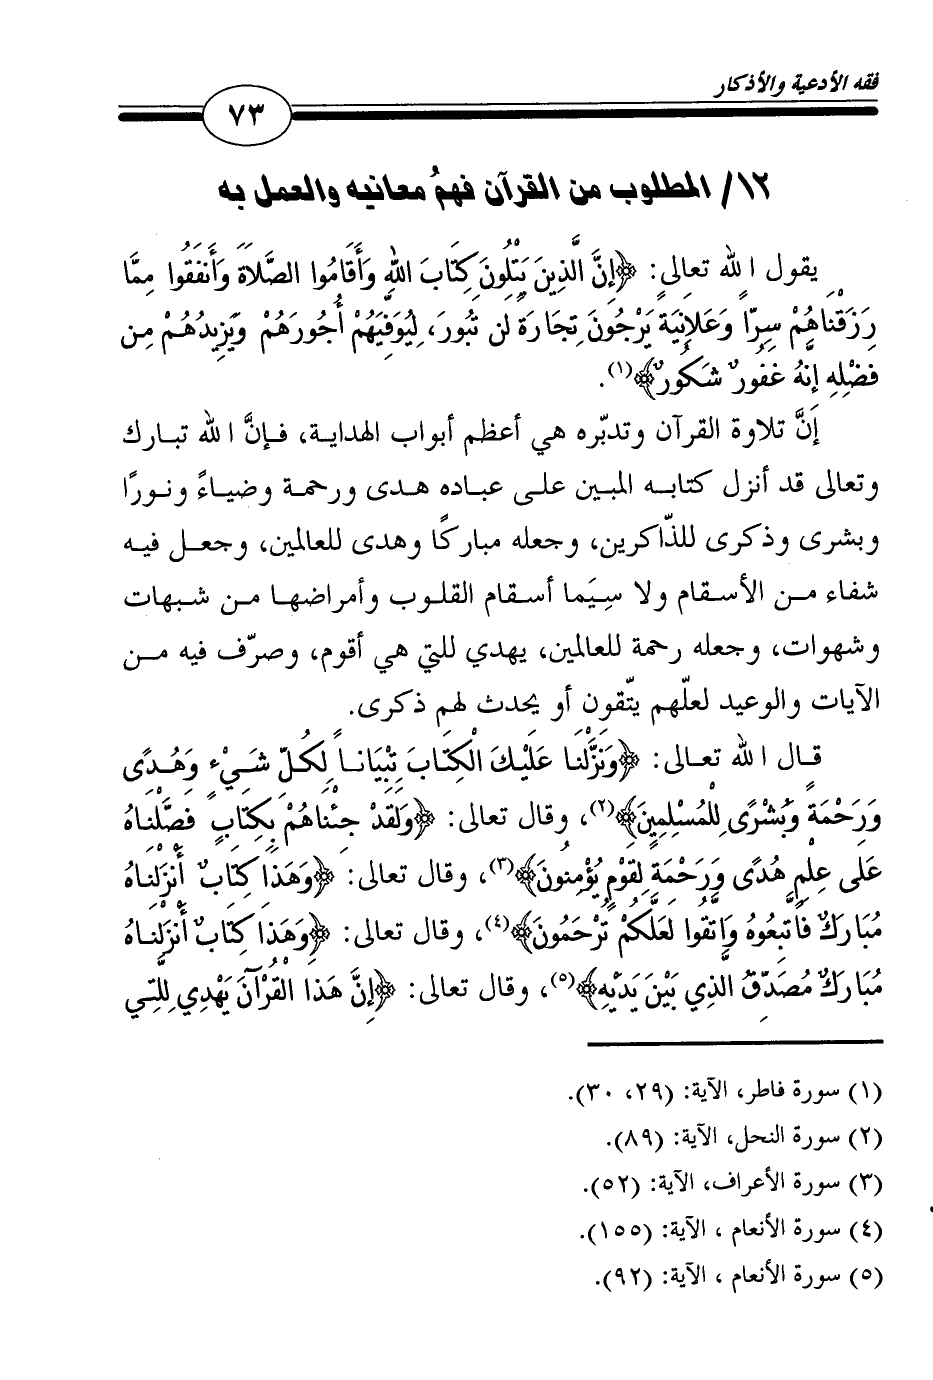 فقه الأدعية والأذكار
٧٣
١٢/ المطلوب من القرآن فهمُ معانيه والعمل به
يقول الله تعالى: ﴿إِنَّ الَّذِينَ يَتْلُونَ كِتَابَ اللَّهِ وَأَقَامُوا الصَّلَاةَ وَأَنفَقُوا مِمَّا
رَزَقْنَاهُمْ سِرًّا وَعَلَانِيَةً يَرْجُونَ تِجَارَةً لَن تَبُورَ، لِيُوَفِّيَهُمْ أُجُورَهُمْ وَيَزِيدُهُمْ مِن
فَضْلِهِ إِنَّهُ غَفُورٌ شَكُورٌ﴾(١).
إنَّ تلاوة القرآن وتدبّره هي أعظم أبواب الهداية، فإنَّ الله تبارك
وتعالى قد أنزل كتابه المبين على عباده هدى ورحمة وضياءً ونورًا
وبشرى وذكرى للذّاكرين، وجعله مباركًا وهدى للعالمين، وجعل فيه
شفاء من الأسقام ولا سِيَما أسقام القلوب وأمراضها من شبهات
وشهوات، وجعله رحمة للعالمين، يهدي للتي هي أقوم، وصرّف فيه من
الآيات والوعيد لعلّهم يتّقون أو يحدث لهم ذكرى.
قال الله تعالى: ﴿وَنَزَّلْنَا عَلَيْكَ الْكِتَابَ تِبْيَاناً لِكُلِّ شَيْءٍ وَهُدًى
وَرَحْمَةً وَبُشْرَى لِلْمُسْلِمِينَ﴾(٢)، وقال تعالى: ﴿وَلَقَدْ جِئْنَاهُمْ بِكِتَابٍ فَصَّلْنَاهُ
عَلَى عِلْمٍ هُدًى وَرَحْمَةً لِقَوْمٍ يُؤْمِنُونَ﴾(٣)، وقال تعالى: ﴿وَهَذَا كِتَابٌ أَنْزَلْنَاهُ
مُبَارَكٌ فَاتَّبِعُوهُ وَاتَّقُوا لَعَلَّكُمْ تُرْحَمُونَ﴾(٤)، وقال تعالى: ﴿وَهَذَا كِتَابٌ أَنْزَلْنَاهُ
مُبَارَكٌ مُصَدِّقُ الَّذِي بَيْنَ يَدَيْهِ﴾(٥)، وقال تعالى: ﴿إِنَّ هَذَا الْقُرْآنَ يَهْدِي لِلَّتِي
(١) سورة فاطر، الآية: (٢٩، ٣٠).
(٢) سورة النحل، الآية: (٨٩).
(٣) سورة الأعراف، الآية: (٥٢).
(٤) سورة الأنعام ، الآية: (١٥٥).
(٥) سورة الأنعام ، الآية: (٩٢).